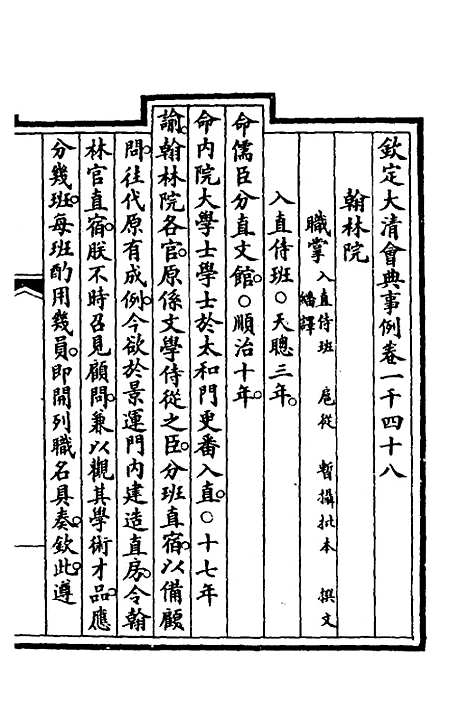 欽定大清會典事例卷一千四十八
翰林院
職掌 入直侍班 扈從 暫攝批本 撰文 繙譯
入直侍班○天聰三年。
命儒臣分直文館。○順治十年。
命內院大學士學士於太和門更番入直。○十七年
諭。翰林院各官。原係文學侍從之臣。分班直宿。以備顧
問。往代原有成例。今欲於景運門內建造直房。令翰
林官直宿。朕不時召見顧問。兼以觀其學術才品。應
分幾班。每班酌用幾員。即開列職名具奏。欽此。遵